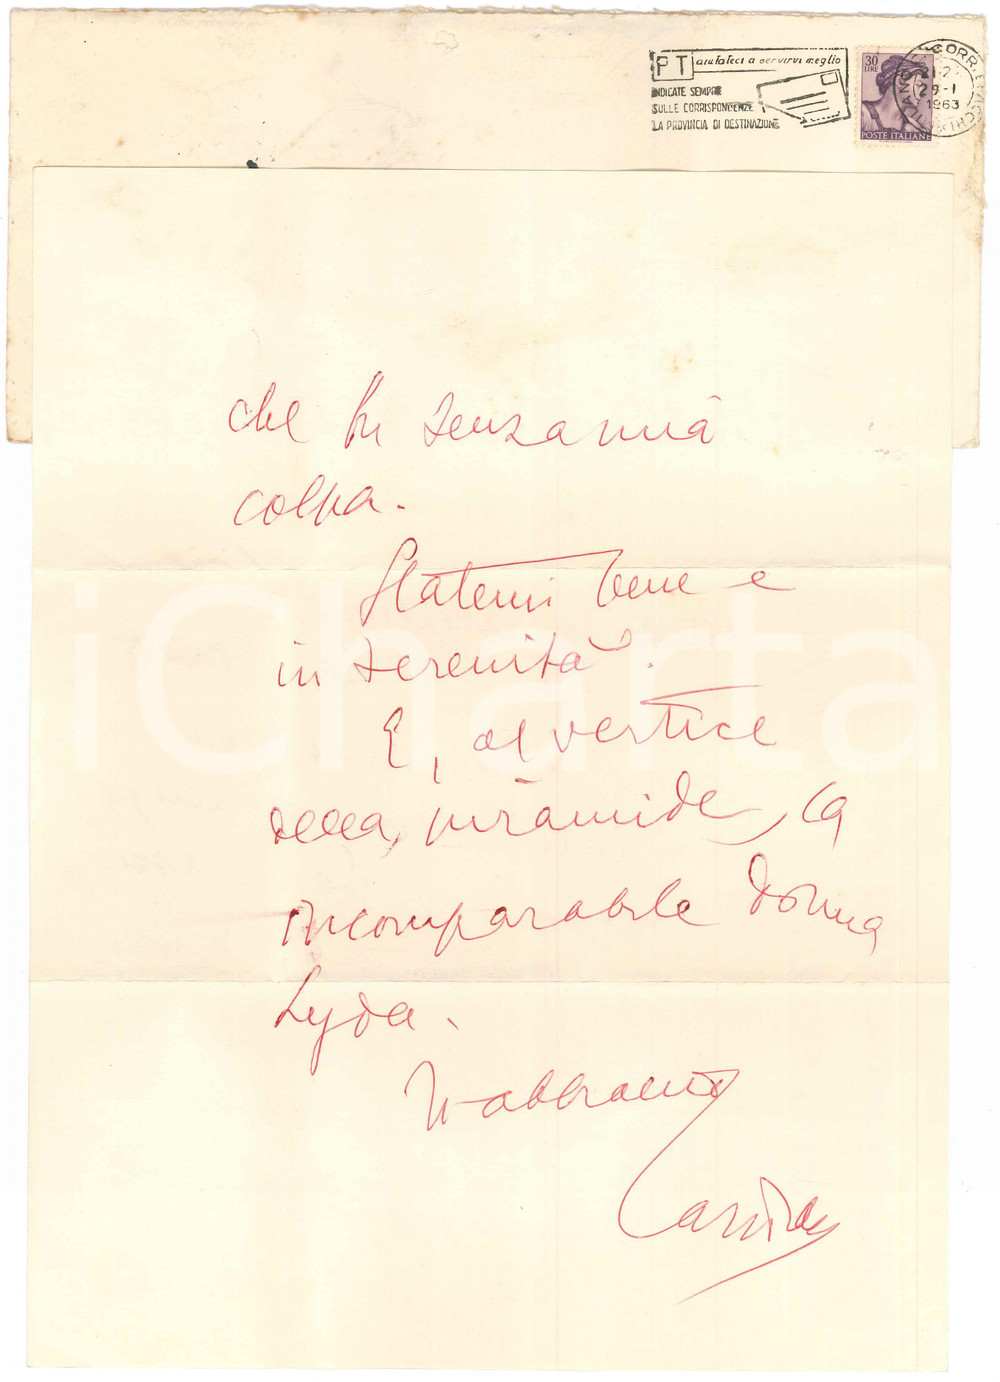 PT aiutateci a servirvi meglio
INDICATE SEMPRE
SULLE CORRISPONDENZE
LA PROVINCIA DI DESTINAZIONE
30
LIRE
POSTE ITALIANE
29-1
1963
che fu senza mia
colpa.
Statemi bene e
in serenità.
E, al vertice
della piramide, la
incomparabile donna
Lyda.
V'abbraccio
iCharta